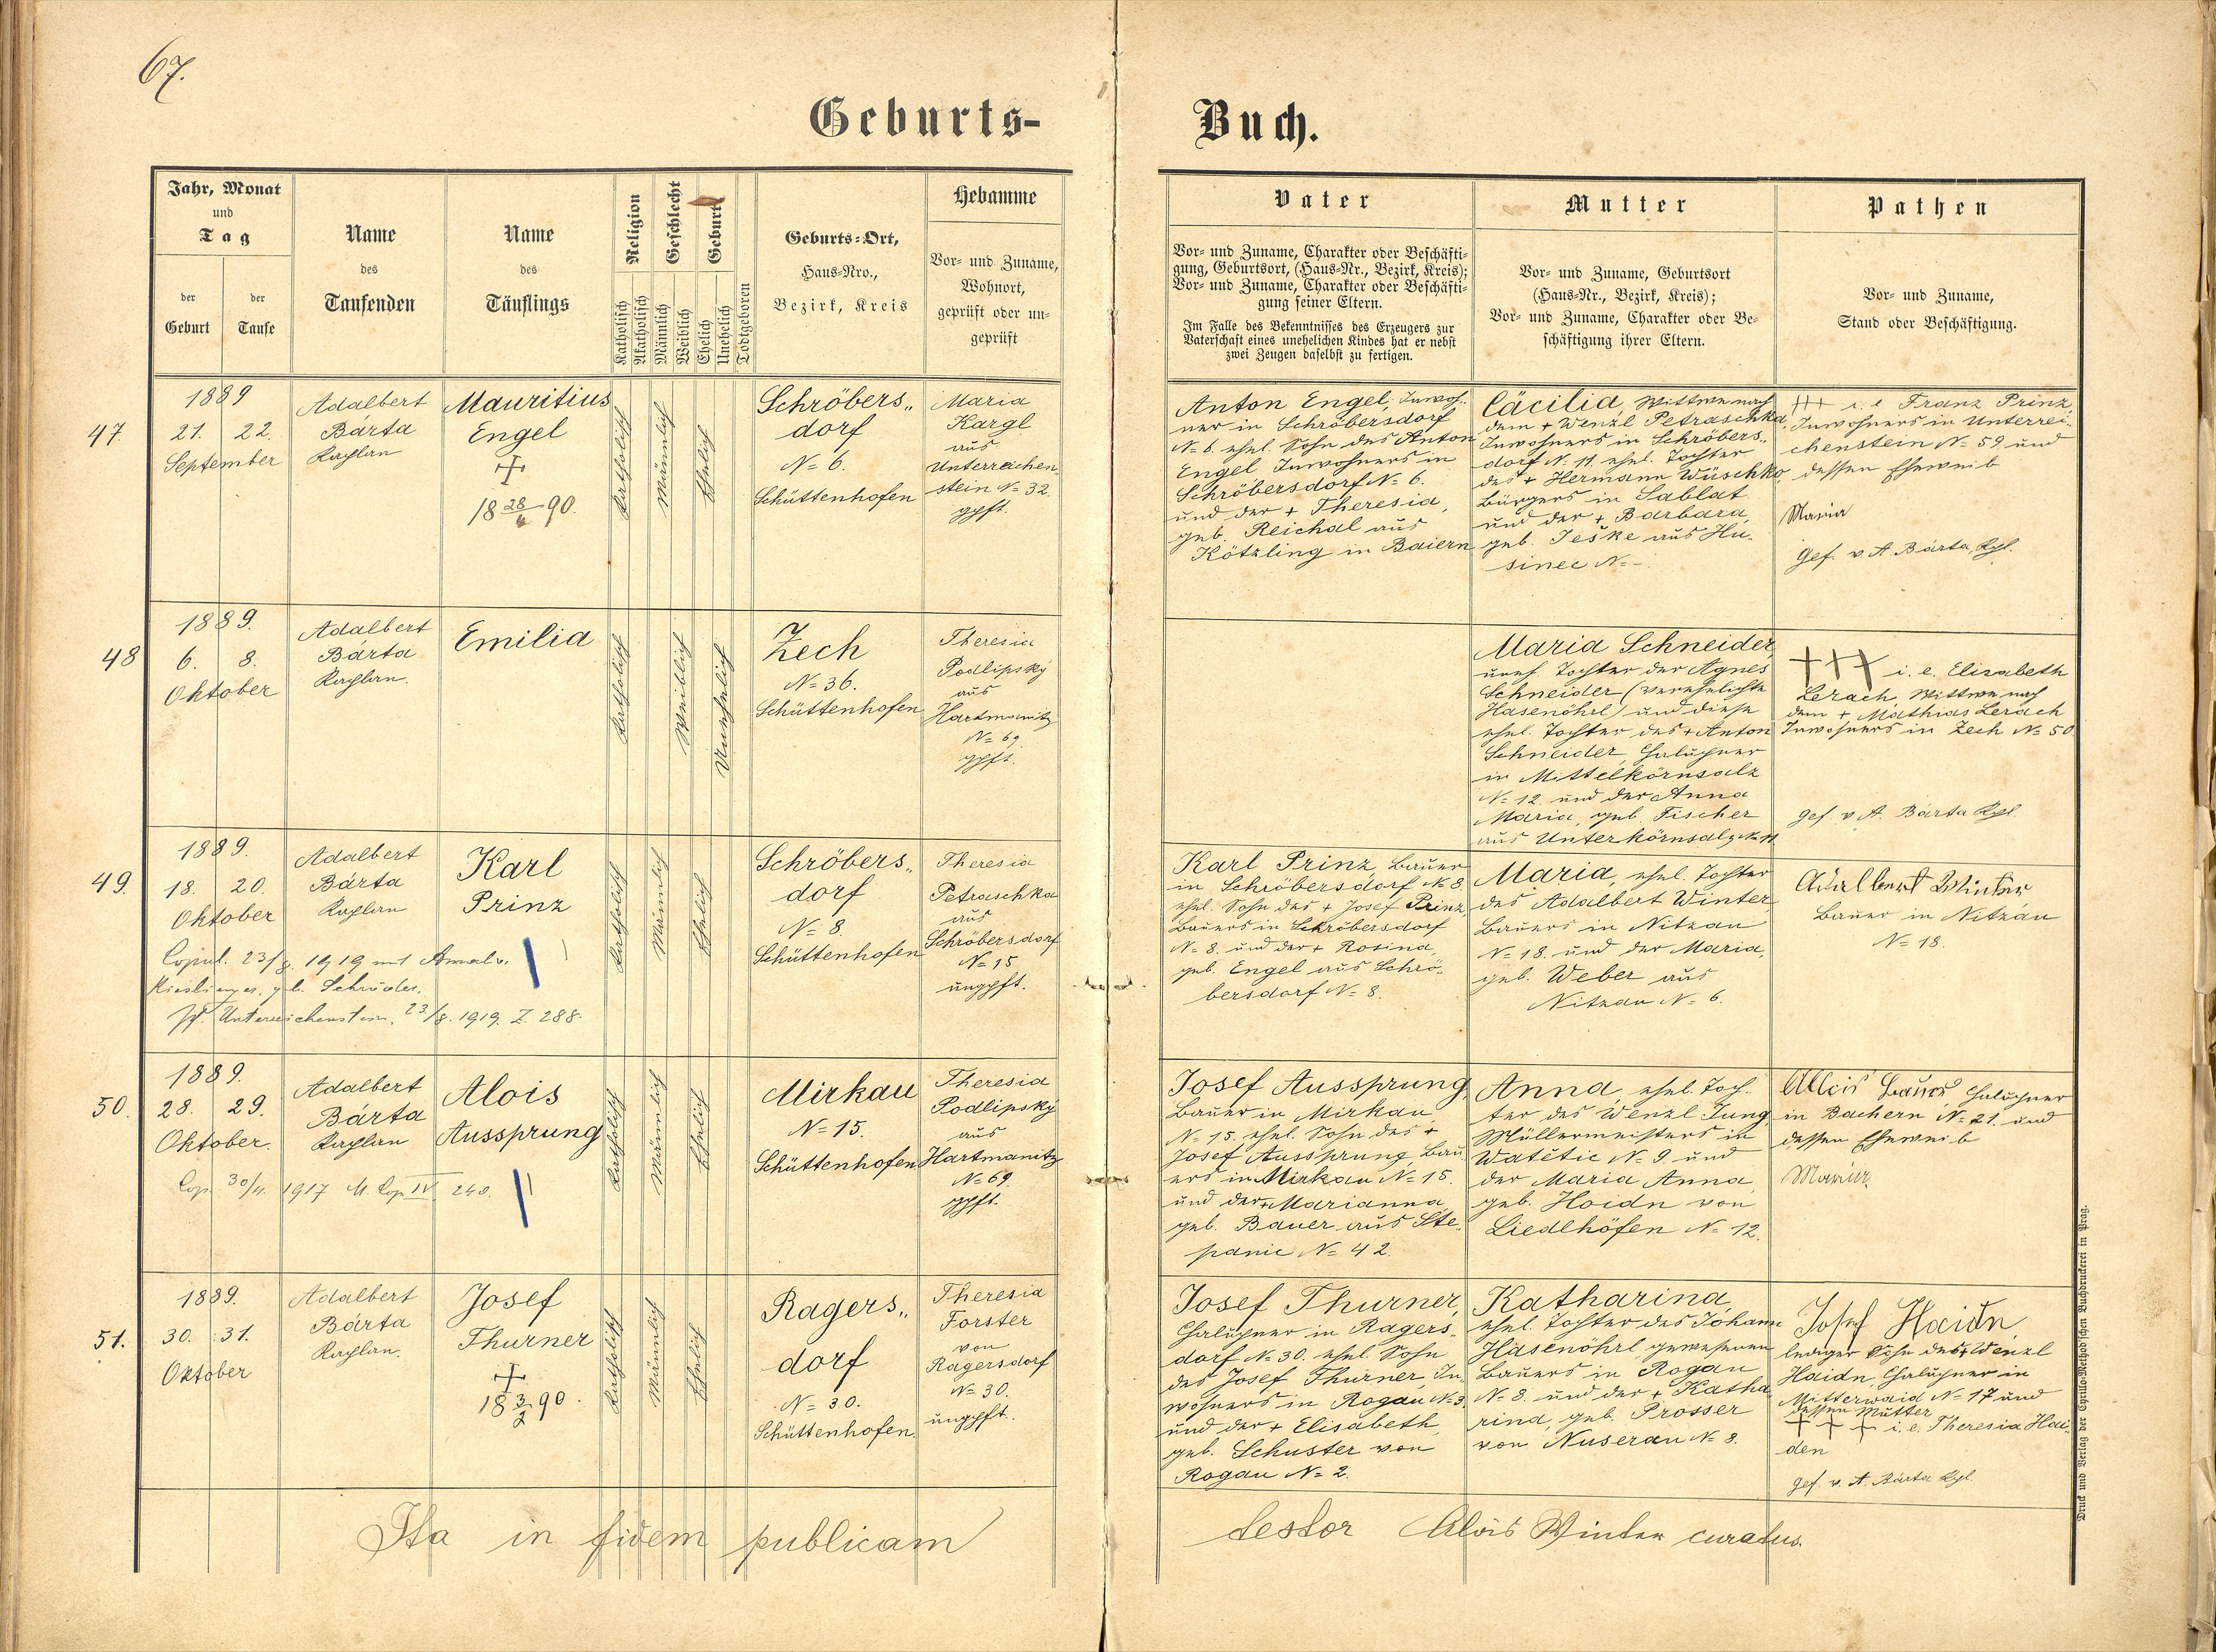 67.
Geburts-
Buch.
Jahr, Monat
und
Tag
der
Geburt
der
Taufe
Name
des
Taufenden
Name
des
Täuflings
Religion
Katholisch
Akatholisch
Geschlecht
Männlich
Weiblich
Geburt
Ehelich
Unehelich
Todtgeboren
Geburts-Ort,
Haus-Nro.,
Bezirk, Kreis
Hebamme
Vor- und Zuname,
Wohnort,
geprüft oder un-
geprüft
Vater
Vor- und Zuname, Charakter oder Beschäfti-
gung, Geburtsort, (Haus-Nr., Bezirk, Kreis);
Vor- und Zuname, Charakter oder Beschäfti-
gung seiner Eltern.
Im Falle des Bekenntnisses des Erzeugers zur
Vaterschaft eines unehelichen Kindes hat er nebst
zwei Zeugen daselbst zu fertigen.
Mutter
Vor- und Zuname, Geburtsort
(Haus-Nr., Bezirk, Kreis);
Vor- und Zuname, Charakter oder Be-
schäftigung ihrer Eltern.
Pathen
Vor- und Zuname,
Stand oder Beschäftigung.
47.
1889
21. 22.
September
Adalbert
Bárta
Kaplan
Mauritius
Engel
18 28/6 90.
Katholisch
Männlich
Ehelich
Schröbers„
dorf
N= 6.
Schüttenhofen
Maria
Kargl
aus
Unterreichen-
stein N= 32.
gpft.
Anton Engel, Inwoh-
ner in Schröbersdorf
N= 6. ehel. Sohn des Anton
Engel Inwohners in
Schröbersdorf N= 6.
und der + Theresia,
geb. Reichal aus
Kötzling in Baiern
Cäcilia, Wittwe nach
dem + Wenzl Petraschka,
Inwohners in Schröbers„
dorf N= 11. ehel. Tochter
des + Hermann Wüschko,
Bürgers in Sablat
und der + Barbara,
geb. Ješke aus Hu-
sinec N= -.
+++ i. e Franz Prinz,
Inwohners in Unterrei-
chenstein N= 59 und
dessen Eheweib
Maria
Gef. v A Bárta, Kpl.
48
1889.
6. 8.
Oktober
Adalbert
Bárta
Kaplan.
Emilia
Katholisch
Weiblich
Unehelich
Zech
N= 36.
Schüttenhofen
Theresia
Podlipský
aus
Hartmanitz
N= 69
gpft.
Maria Schneider,
uneh. Tochter der Agnes
Schneider (verehelichte
Hasenöhrl) und diese
ehel. Tochter des + Anton
Schneider, Chalupner
in Mittelkörnsalz
N= 12 und der Anna
Maria, geb. Fischer
aus Unterkörnsalz N= 11
+++ i. e. Elisabeth
Lerach, Wittwe nach
dem + Mathias Lerach
Inwohners in Zech N= 50.
gef v A. Bárta Kpl.
49.
1889.
18. 20.
Oktober
Adalbert
Bárta
Kaplan
Karl
Prinz
Katholisch
Männlich
Ehelich
Schröbers„
dorf
N= 8.
Schüttenhofen
Theresia
Petraschka
aus
Schröbersdorf
N= 15
ungpft.
Copul. 23/8. 1919 mit
geb. Schröder.
Unterreichenstein, 23/8. 1919. Z. 288.
Karl Prinz, Bauer
in Schröbersdorf N= 8.
ehel. Sohn des + Josef Prinz,
Bauers in Schröbersdorf
N= 8. und der + Rosina,
geb. Engel aus Schrö-
bersdorf N= 8.
Maria, ehel. Tochter
des Adalbert Winter,
Bauers in Nitzau
N= 18. und der Maria,
geb. Weber aus
Nitzau N= 6.
Adalbert Winter
Bauer in Nitzau
N= 18.
50.
1889.
28. 29.
Oktober.
Adalbert
Bárta
Kaplan
Alois
Aussprung
Katholisch
Männlich
Ehelich
Mirkau
N= 15.
Schüttenhofen
Theresia
Podlipský
aus
Hartmanitz
N= 69.
gpft.
Cop. 30/4. 1917 M. Cop IV 240.
Josef Aussprung,
Bauer in Mirkau
N= 15. ehel. Sohn des +
Josef Aussprung, Bau-
ers in Mirkau N= 15.
und der + Marianna,
geb. Bauer aus Ste-
panic N= 42.
Anna, ehel. Toch-
ter des Wenzl Jung,
Müllermeisters in
Watětic N= 9. und
der Maria Anna
geb. Hoidn von
Liedlhöfen N= 12.
Alois Bauer Chalupner
in Bachern N= 21. und
dessen Eheweib
Maria
51.
1889.
30. 31.
Oktober
Adalbert
Bárta
Kaplan.
Josef
Thurner
18 3/2 90.
Katholisch
Männlich
Ehelich
Ragers„
dorf
N= 30.
Schüttenhofen.
Theresia
Forster
von
Ragersdorf
N= 30.
ungpft.
Josef Thurner,
Chalupner in Ragers-
dorf N= 30. ehel. Sohn
des Josef Thurner, In-
wohners in Rogau N= 3.
und der + Elisabeth,
geb. Schuster von
Rogau N= 2.
Katharina,
ehel. Tochter des Johann
Hasenöhrl, gewesenen
Bauers in Rogau
N= 8. und der + Katha-
rina, geb. Prosser
von Nuserau N= 8.
Josef Haidn,
lediger Sohn des + Wenzl
Haidn, Chalupner in
Mitterwaid N= 17 und
dessen Mutter
+ + + i. e. Theresia Hai-
den
gef. v. A. Bárta Kpl.
Ita in fidem publicam
testor Alois Winter curatus.
Druck und Verlag der Cyrillo-Method'schen Buchdruckerei in Prag.